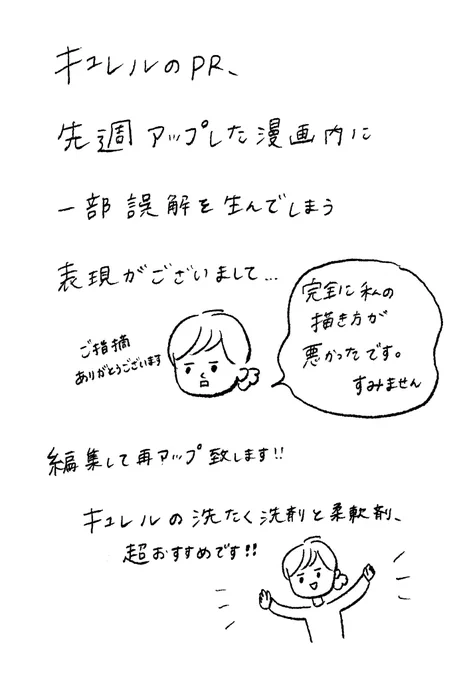 キュレルのPR、
先週アップした漫画内に
一部誤解を生んでしまう
表現がございまして…
完全に私の
描き方が
悪かったです。
すみません
ご指摘
ありがとうございます
編集して再アップ致します!!
キュレルの洗たく洗剤と柔軟剤、
超おすすめです!!